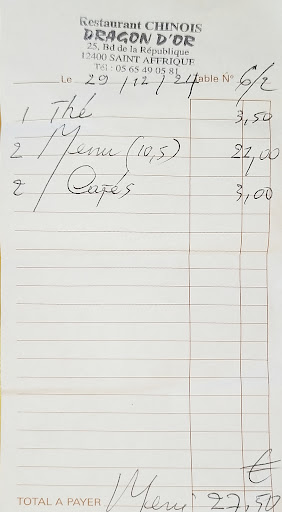 Restaurant CHINOIS
DRAGON D'OR
25, Bd de la République
12400 SAINT AFFRIQUE
Tél : 05 65 49 05 81
Le 29/12/24 Table N° 6/2
1 Thé 3,50
2 Menu (10,5) 21,00
2 Cafés 3,00
€
TOTAL A PAYER Merci 27,50